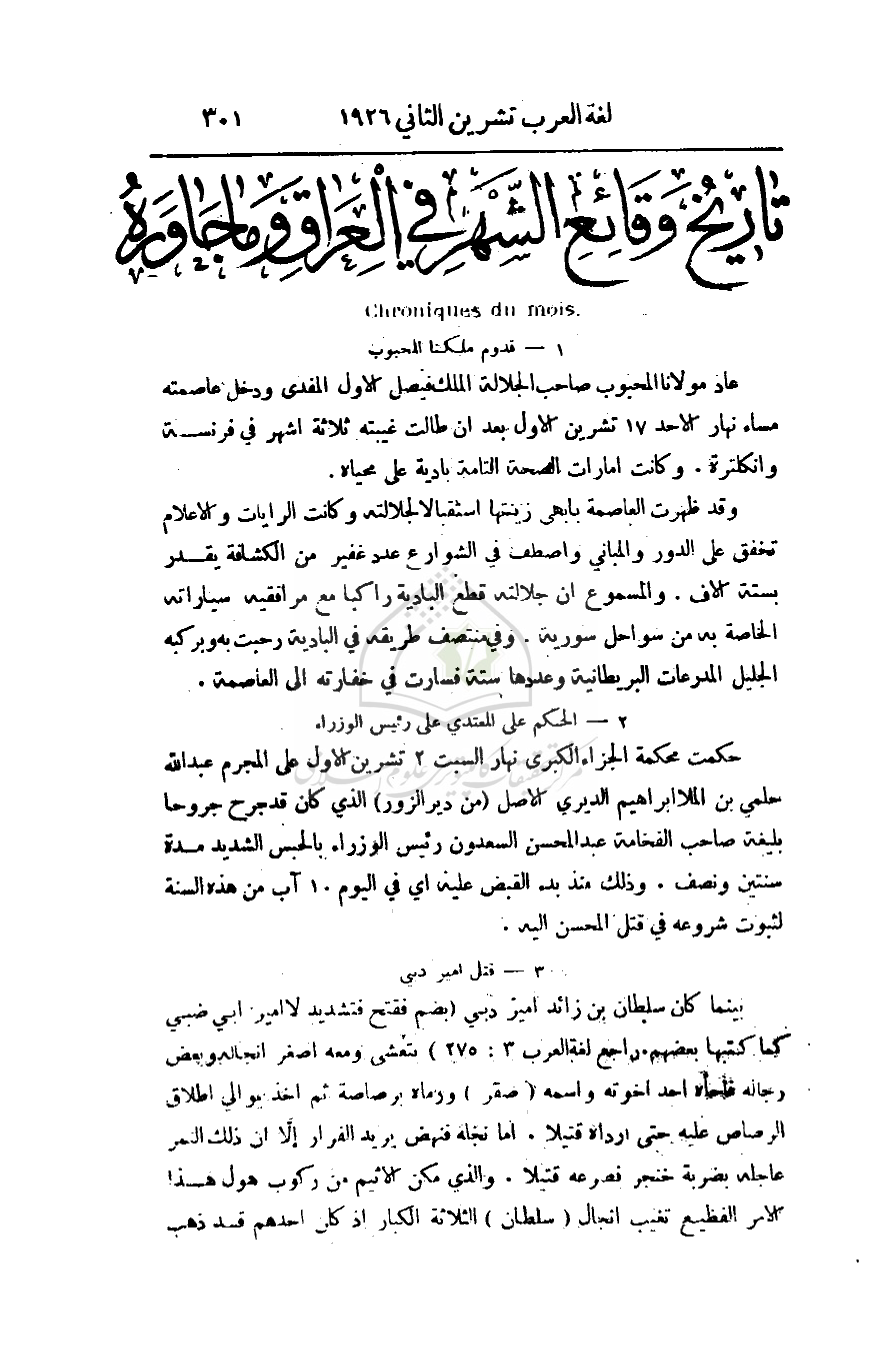 لغة العرب تشرين الثاني ١٩٢٦ ٣٠١
تاريخ وقائع الشهر في العراق وما جاوره
Chroniques du mois.
١ — قدوم ملكنا المحبوب
عاد مولانا المحبوب صاحب الجلالة الملك فيصل الاول المفدى ودخل عاصمته
مساء نهار الاحد ١٧ تشرين الاول بعد ان طالت غيبته ثلاثة اشهر في فرنسة
وانكلترة . وكانت امارات الصحة التامة بادية على محياه .
وقد ظهرت العاصمة بابهى زينتها استقبالا لجلالته وكانت الرايات والاعلام
تخفق على الدور والمباني واصطف في الشوارع عدد غفير من الكشافة يقدر
بستة الاف . والمسموع ان جلالته قطع البادية راكبا مع مرافقيه سياراته
الخاصة به من سواحل سورية . وفي منتصف طريقه في البادية رحبت به وبركبه
الجليل المدرعات البريطانية وعددها ستة فسارت في خفارته الى العاصمة .
٢ — الحكم على المعتدي على رئيس الوزراء
حكمت محكمة الجزاء الكبرى نهار السبت ٢ تشرين الاول على المجرم عبدالله
حلمي بن الملا ابراهيم الديري الاصل (من دير الزور) الذي كان قد جرح جروحا
بليغة صاحب الفخامة عبدالمحسن السعدون رئيس الوزراء بالحبس الشديد مدة
سنتين ونصف . وذلك منذ بدء القبض عليه اي في اليوم ١٠ آب من هذه السنة
لثبوت شروعه في قتل المحسن اليه .
٣ — قتل امير دبي
بينما كان سلطان بن زائد امير دبي (بضم ففتح فتشديد لا امير ابي ضبي
كما كتبها بعضهم. راجع لغة العرب ٣ : ٢٧٥ ) يتعشى ومعه اصغر انجاله وبعض
رجاله فاجأه احد اخوته واسمه ( صقر ) ورماه برصاصة ثم اخذ يوالي اطلاق
الرصاص عليه حتى ارداه قتيلا . اما نجله فنهض يريد الفرار إلّا ان ذلك النمر
عاجله بضربة خنجر فصرعه قتيلا . والذي مكن الاثيم من ركوب هول هذا
الامر الفظيع تغيب انجال ( سلطان ) الثلاثة الكبار اذ كان احدهم قد ذهب